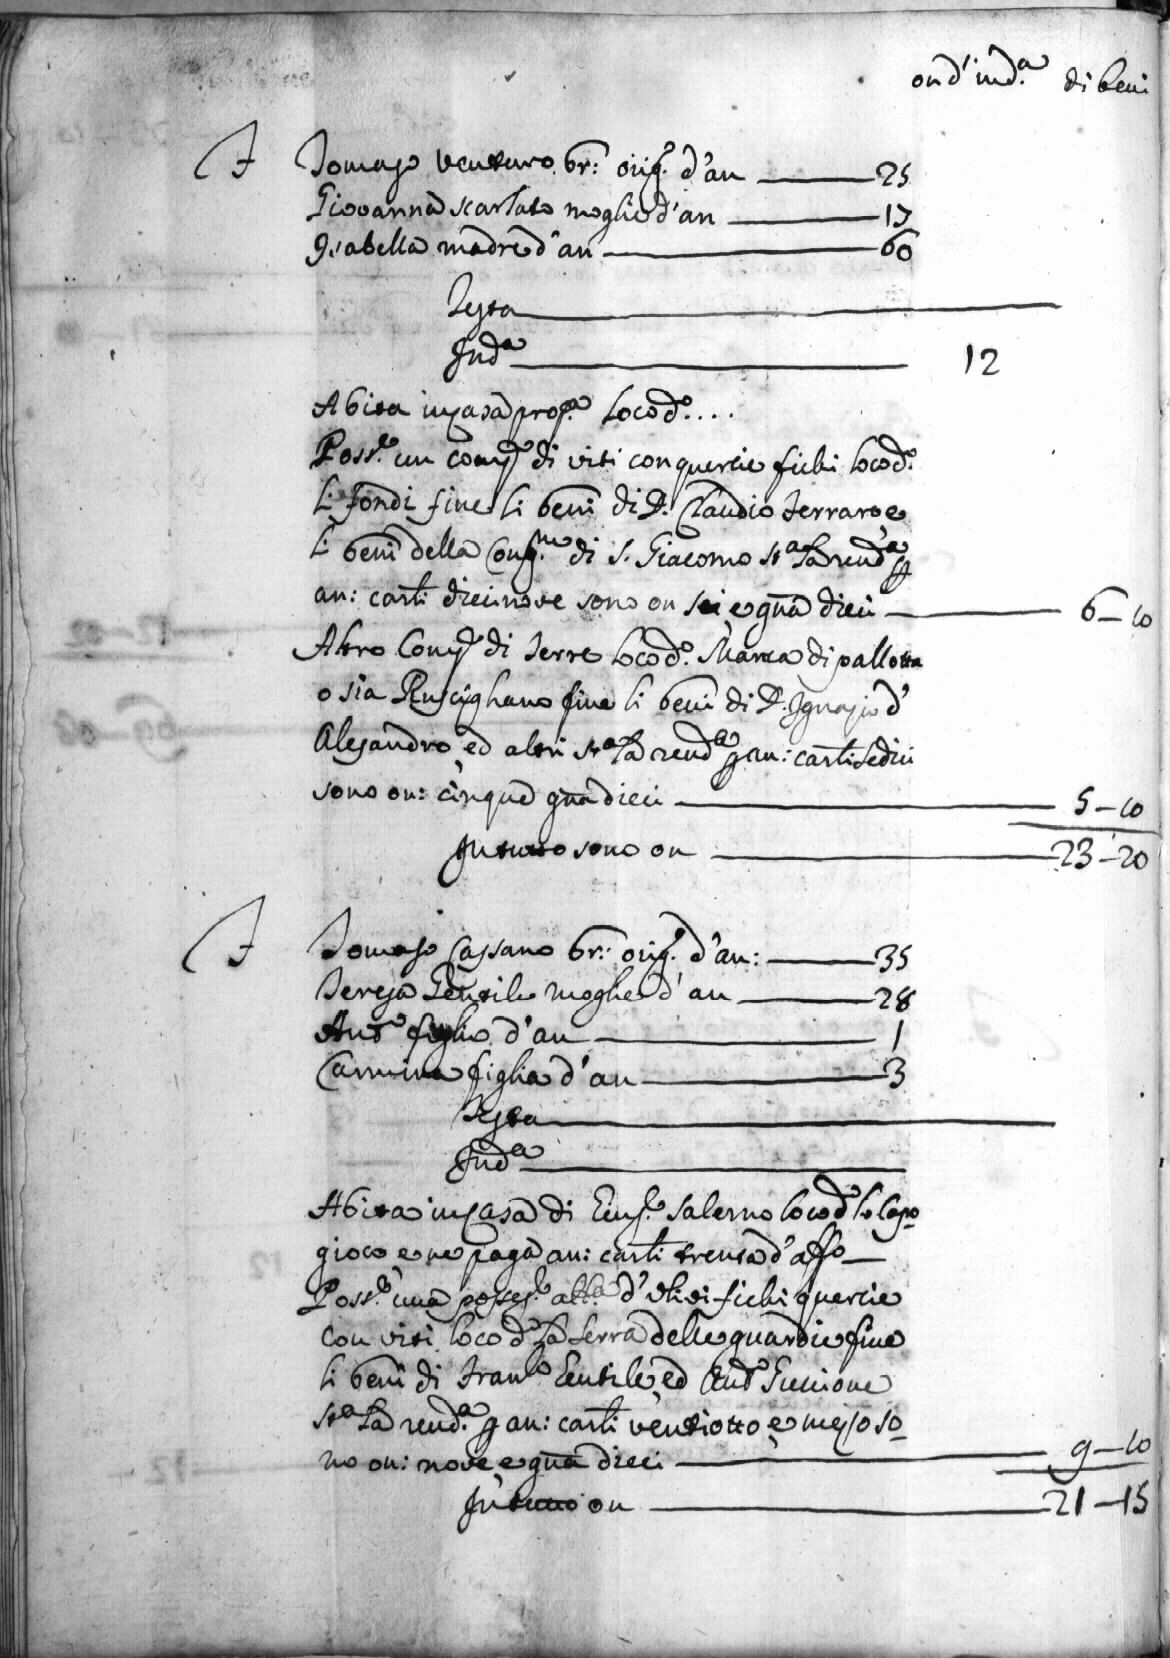 on d' ind.a di beni
T Tomaso Venturo br: orig.e d'an 25
Giovanna Scarlato moglie d'an 17
Isabella madre d'an 60
Testa
Ind.a 12
Abita in casa prop.a loco d.o ....
Poss.e un comp.o di viti con quercie fichi loco d.o
li fondi fine li beni di D. Claudio Ferraro e
li beni della Cong.ne di S. Giacomo st.a la rend.a p
an: carli diecinove sono on sei e grna dieci 6-10
Altro comp.o di terre loco d.o Marca di pallotta
o sia Ruscighano fine li beni di D. Ignazio d'
Alesandro, ed altri st.a la rend.a p an: carli sedici
sono on: cinque grna dieci 5-10
In tutto sono on 23-20
T Tomaso Cassano br: orig.e d'an: 35
Teresa Gentile moglie d'an 28
Ant.o figlio d'an 1
Carmina figlia d'an 3
Testa
Ind.a
Abita in casa di Salerno loco d.o lo Capo
gioco e ne paga an: carli trenta d'affo
Poss.e una posses.e d'ulivi fichi quercie
con viti loco d.o la serra delle guardie fine
li beni di Fran.o Gentile, ed Ant.o Guccione
st.a la rend.a p an: carli ventiotto e mezo so
no on: nove e grna dieci 9-10
In tutto on 21-15